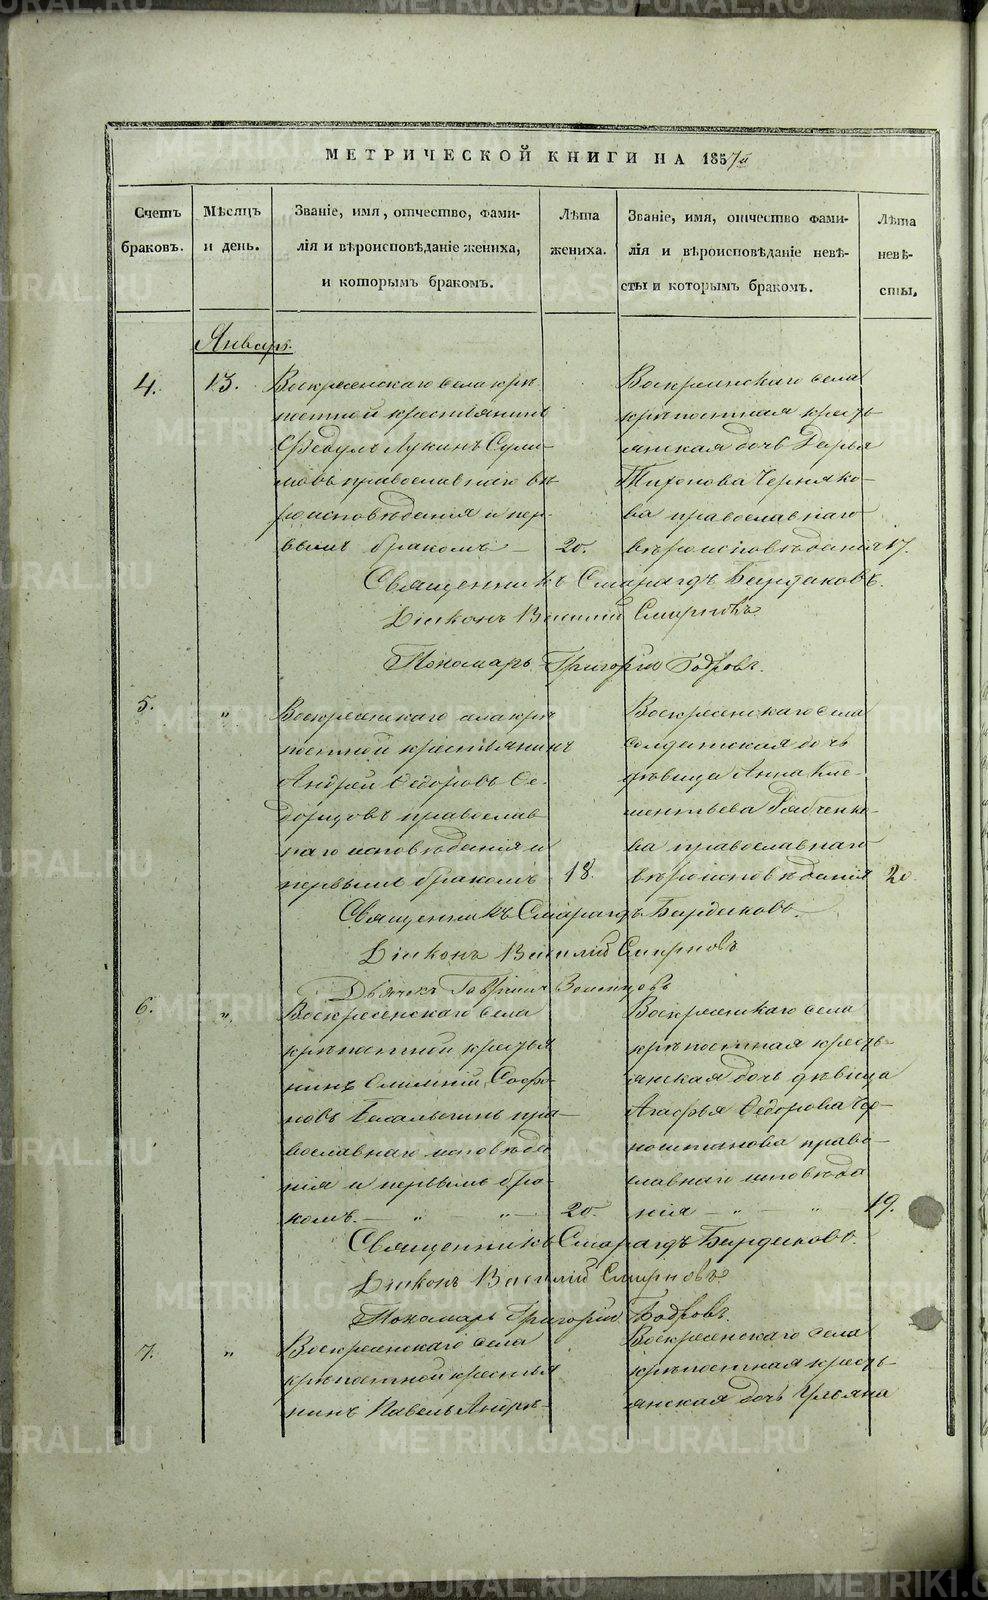 МЕТРИЧЕСКОЙ КНИГИ НА 1857й
Счетъ
браковъ.
Мѣсяцъ
и день.
Званіе, имя, отчество, фами-
лія и вѣроисповѣданіе жениха,
и которымъ бракомъ.
Лѣта
жениха.
Званіе, имя, отчество фами-
лія и вѣроисповѣданіе невѣ-
сты и которымъ бракомъ.
Лѣта
невѣ-
сты.
Январь.
4.
13.
Воскресенскаго села крѣ
постной крестьянинъ
Ѳедулъ Лукинъ Сули
мовъ православнаго вѣ
роисповѣданія и пер-
вымъ бракомъ —
20.
Воскресенскаго села
крѣпостная кресть-
янская дочь Дарья
Тихонова Черняко-
ва православнаго
вѣроисповѣданія
17.
Священникъ Смарагдъ Бирдаковъ.
Діаконъ Василій Смирновъ
Пономарь Григорій Бодровъ.
5.
"
Воскресенскаго села крѣ
постной крестьянинъ
Андрей Ѳедоровъ Ѳе-
православ
наго исповѣданія и
первымъ бракомъ
18.
Воскресенскаго села
солдатская дочь
дѣвица Анна Кле-
ментьева Рябченко-
ва православнаго
вѣроисповѣданія
20.
Священникъ Смарагдъ Бирдаковъ.
Діаконъ Василій Смирновъ
Дьячекъ Гавріилъ
6.
"
Воскресенскаго села
крѣпостной крестья
нинъ Софо-
новъ пра-
вославнаго исповѣда
нія и первымъ бра-
комъ. — " " —
20.
Воскресенскаго села
крѣпостная кресть-
янская дочь дѣвица
Агафья Ѳедорова Чер-
ношпанова право-
славнаго исповѣда
нія — " — "
19.
Священникъ Смарагдъ Бирдаковъ.
Діаконъ Василій Смирновъ
Пономарь Григорій Бодровъ.
7.
"
Воскресенскаго села
крѣпостной крестья
нинъ Павелъ Андре-
Воскресенскаго села
крѣпостная кресть-
янская дочь Ульяна
METRIKI.GASO-URAL.RU